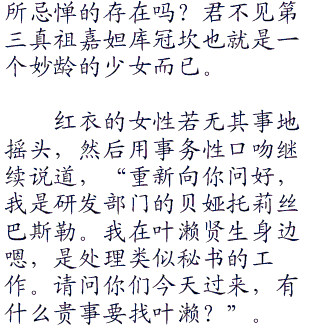 所忌惮的存在吗？君不见第
三真祖嘉妲库冠坎也就是一
个妙龄的少女而已。
红衣的女性若无其事地
摇头，然后用事务性口吻继
续说道，“重新向你问好，
我是研发部门的贝娅托莉丝
巴斯勒。我在叶濑贤生身边
嗯，是处理类似秘书的工
作。请问你们今天过来，有
什么贵事要找叶濑？”。